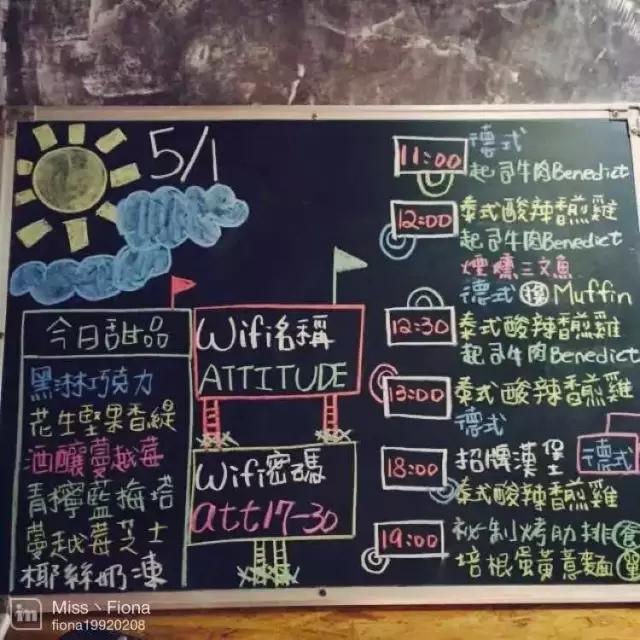 5/1
今日甜品
黑淋巧克力
花生堅果香緹
酒釀蔓越莓
青檸藍梅塔
蔓越莓芝士
椰絲奶凍
Wifi名稱
ATTITUDE
Wifi密碼
att17-30
11:00
德式
起司牛肉Benedict
12:00
泰式酸辣香煎雞
起司牛肉Benedict
煙燻三文魚
德式 換 Muffin
12:30
泰式酸辣香煎雞
起司牛肉Benedict
13:00
泰式酸辣香煎雞
德式
18:00
招牌漢堡
德式
泰式酸辣香煎雞
19:00
祕制烤肋排
培根蛋黃意麵 單
in Miss丶Fiona
fiona19920208